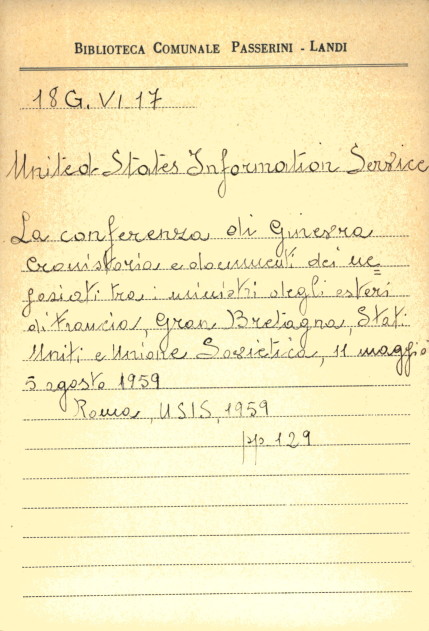 BIBLIOTECA COMUNALE PASSERINI - LANDI
18 G. VI. 17
United States Information Service
La conferenza di Ginevra
Cronistoria e documenti dei ne=
goziati tra i ministri degli esteri
di Francia, Gran Bretagna, Stati
Uniti e Unione Sovietica, 11 maggio
5 agosto 1959
Roma, USIS, 1959
pp 129